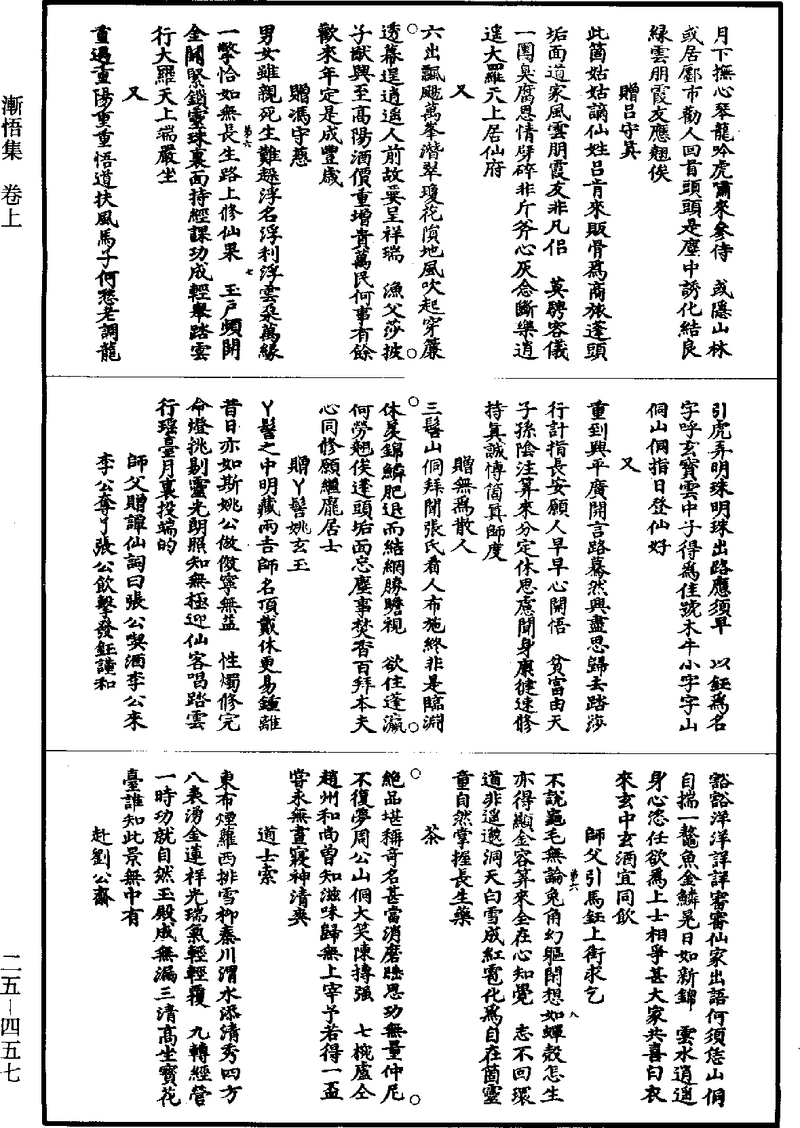 漸悟集　卷上
二五—四五七
月下撫心琴龍吟虎嘯來參侍　或隱山林
或居鄽市勸人回首頭頭是塵中誘化結良
緣雲朋霞友應翹俟
贈呂守真
此箇姑姑謫仙姓呂肯來販骨爲商旅蓬頭
垢面道家風雲朋霞友非凡侶　莫騁容儀
一團臭腐恩情劈碎非斤斧心灰念斷樂逍
遥大羅天上居仙府
又
六出飄颻萬峯潛翠瓊花隕地風吹起穿簾
透幕逞逍遥人前故要呈祥瑞　漁父莎披
子猷興至高陽酒價重增貴萬民何事有餘
歡來年定是成豐歲
贈馮守慈
男女雖親死生難趓浮名浮利浮雲朵萬緣
一擊恰如無長生路上修仙果　玉戶頻開
金關緊鎖靈珠裏面持經課功成輕舉踏雲
行大羅天上端嚴坐
又
重遇重陽重重悟道扶風馬子何愁老調龍
第六
七
引虎弄明珠明珠出路應須早　以鈺爲名
字呼玄寳雲中子得爲佳號木牛小字字山
侗山侗指日登仙好
又
重到興平廣開言路驀然興盡思歸去踏莎
行計指長安願人早早心開悟　貧富由天
子孫陰注算來分定休思慮閑身康健速修
持真誠傳箇真師度
贈無爲散人
三髻山侗拜聞張氏看人布施終非是臨淵
休羨錦鱗肥退而結網勝瞻視　欲住蓬瀛
何勞翹俟蓬頭垢面忘塵事焚香百拜本夫
心同修願繼龐居士
贈丫髻姚玄玉
丫髻之中明藏兩吉師名頂戴休更易鍾離
昔日亦如斯姚公做傚寧無益　性燭修完
命燈挑剔靈光朗照知無極迎仙客唱踏雲
行瑶臺月裏投端的
師父贈譚仙詞曰張公喫酒李公來
李公奪了張公飲擊發鈺謹和
豁豁洋洋詳詳審審仙家出語何須恁山侗
自揣一鼇魚金鱗晃日如新錦　雲水逍遥
身心恣任欲爲上士相爭甚大家共喜白衣
來玄中玄酒宜同飲
師父引馬鈺上街求乞
不說龜毛無論兔角幻軀閑想如蟬殼怎生
亦得顯金容算來全在心知覺　志不回環
道非遥邈洞天白雪成紅雹化爲自在箇靈
童自然掌握長生藥
第六
八
茶
絶品堪稱奇名甚當消磨睡思功無量仲尼
不復夢周公山侗大笑陳摶强　七椀盧仝
趙州和尚曾知滋味歸無上宰予若得一盃
嘗永無晝寢神清爽
道士索
東布煙蘿西排雪柳秦川渭水添清秀四方
八表湧金蓮祥光瑞氣輕輕覆　九轉經營
一時功就自然玉殿成無漏三清高坐寳花
臺誰知此景無中有
赴劉公齋